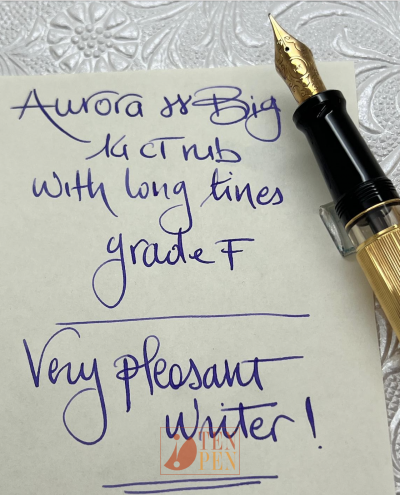 Aurora 88 Big
14 ct nib
with long tines
grade F
Very pleasant
writer!
TEN
PEN